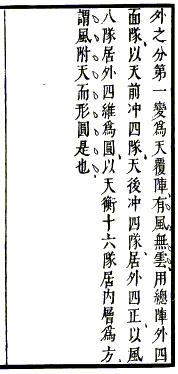 外之分第一變爲天覆陣有風無雲用總陣外四
面隊以天前冲四隊天後冲四隊居外四正以風
八隊居外四維爲圓以天衡十六隊居內層爲方
謂風附天而形圓是也